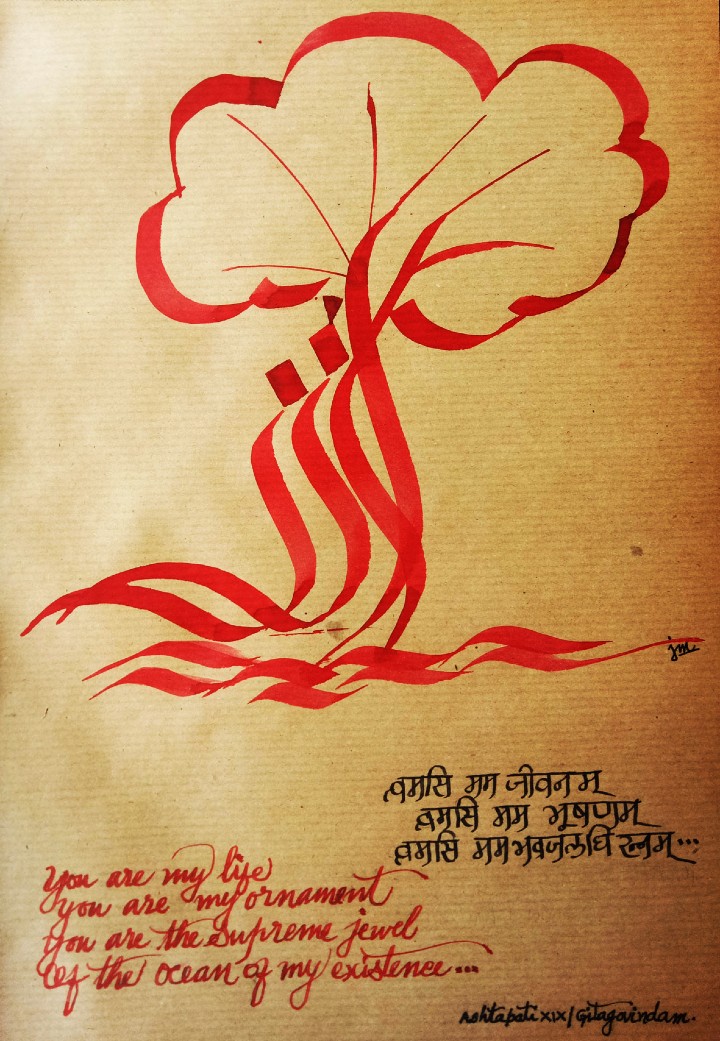 jm
त्वमसि मम जीवनम्
त्वमसि मम भूषणम्
त्वमसि मम भवजलधि रत्नम्...
You are my life
you are my ornament
you are the supreme jewel
Of the ocean of my existence...
Ashtapati XIX/Gitagovindam.